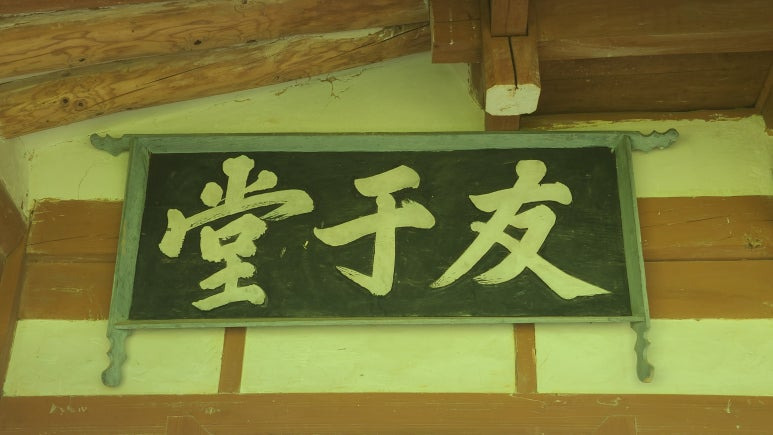 友于堂